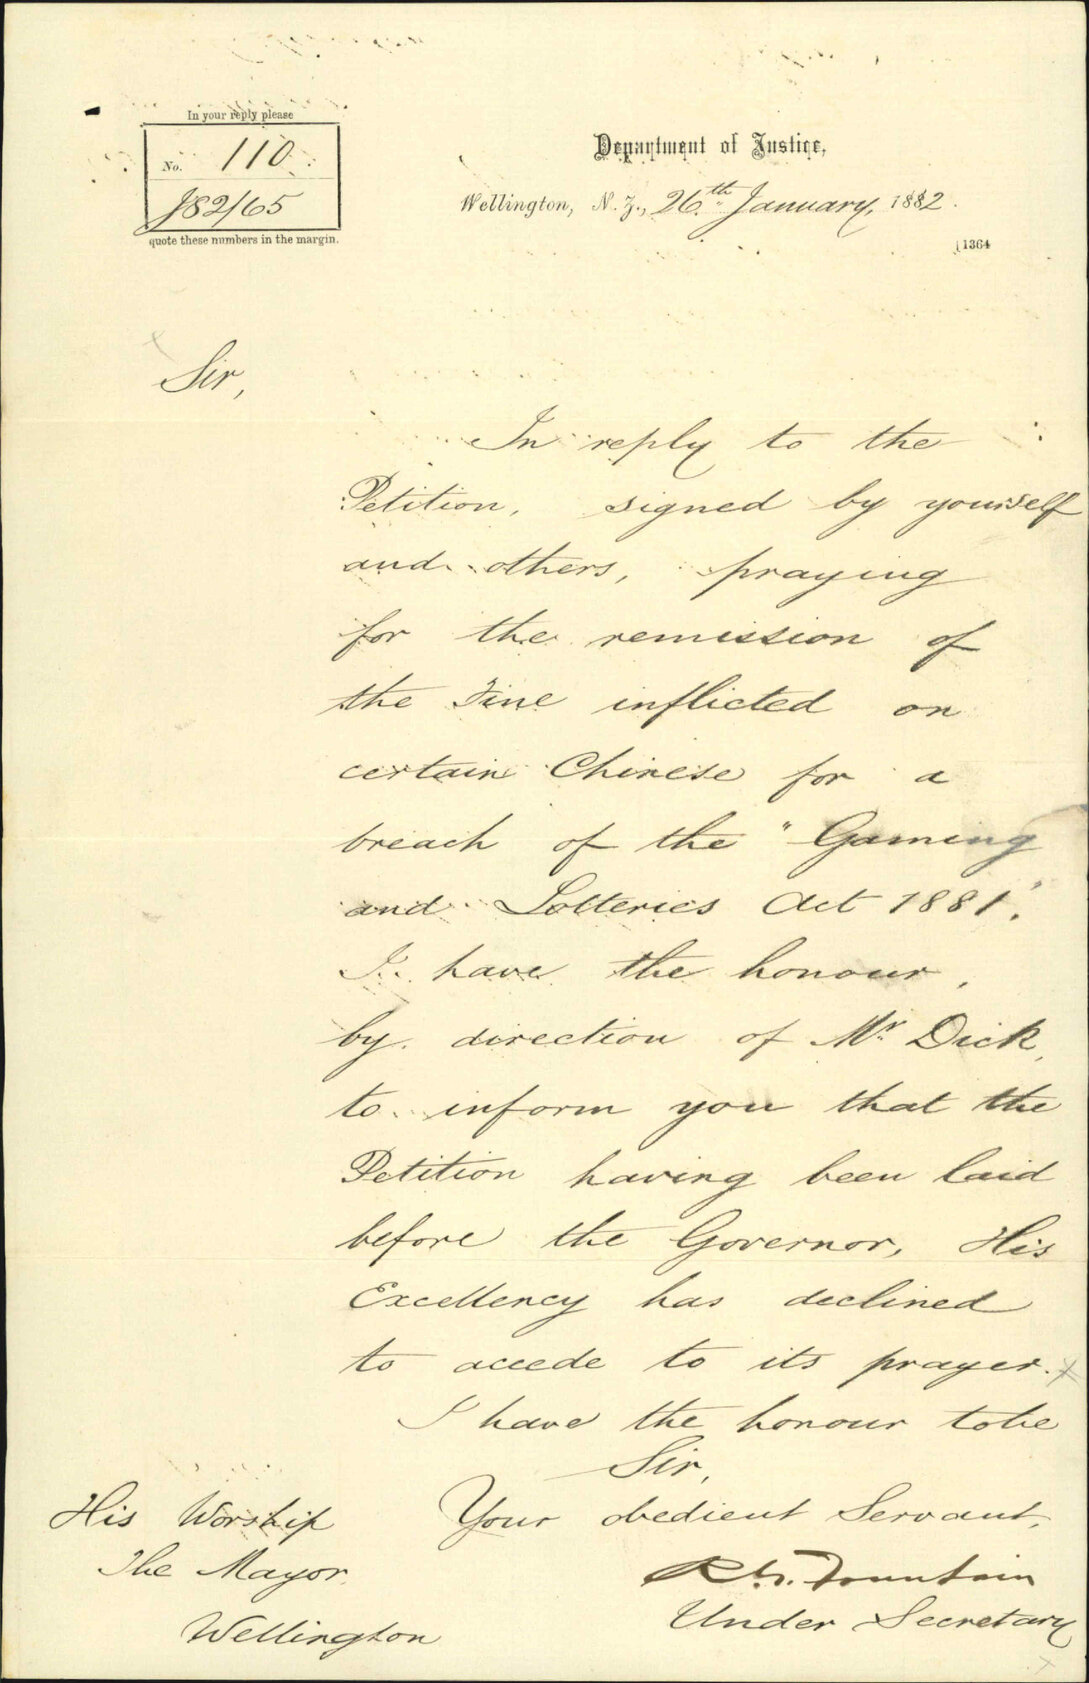 In your reply please
No. 110
J82/65
quote these numbers in the margin.
Department of Justice,
Wellington, N.Z., 26th January, 1882.
1364
Sir,
In reply to the
Petition, signed by yourself
and others, praying
for the remission of
the Fine inflicted on
certain Chinese for a
breach of the "Gaming
and Lotteries Act 1881",
I have the honour,
by direction of Mr Dick,
to inform you that the
Petition having been laid
before the Governor, His
Excellency has declined
to accede to its prayer.
I have the honour to be
Sir,
Your obedient Servant,
Fountain
Under Secretary
His Worship
The Mayor
Wellington